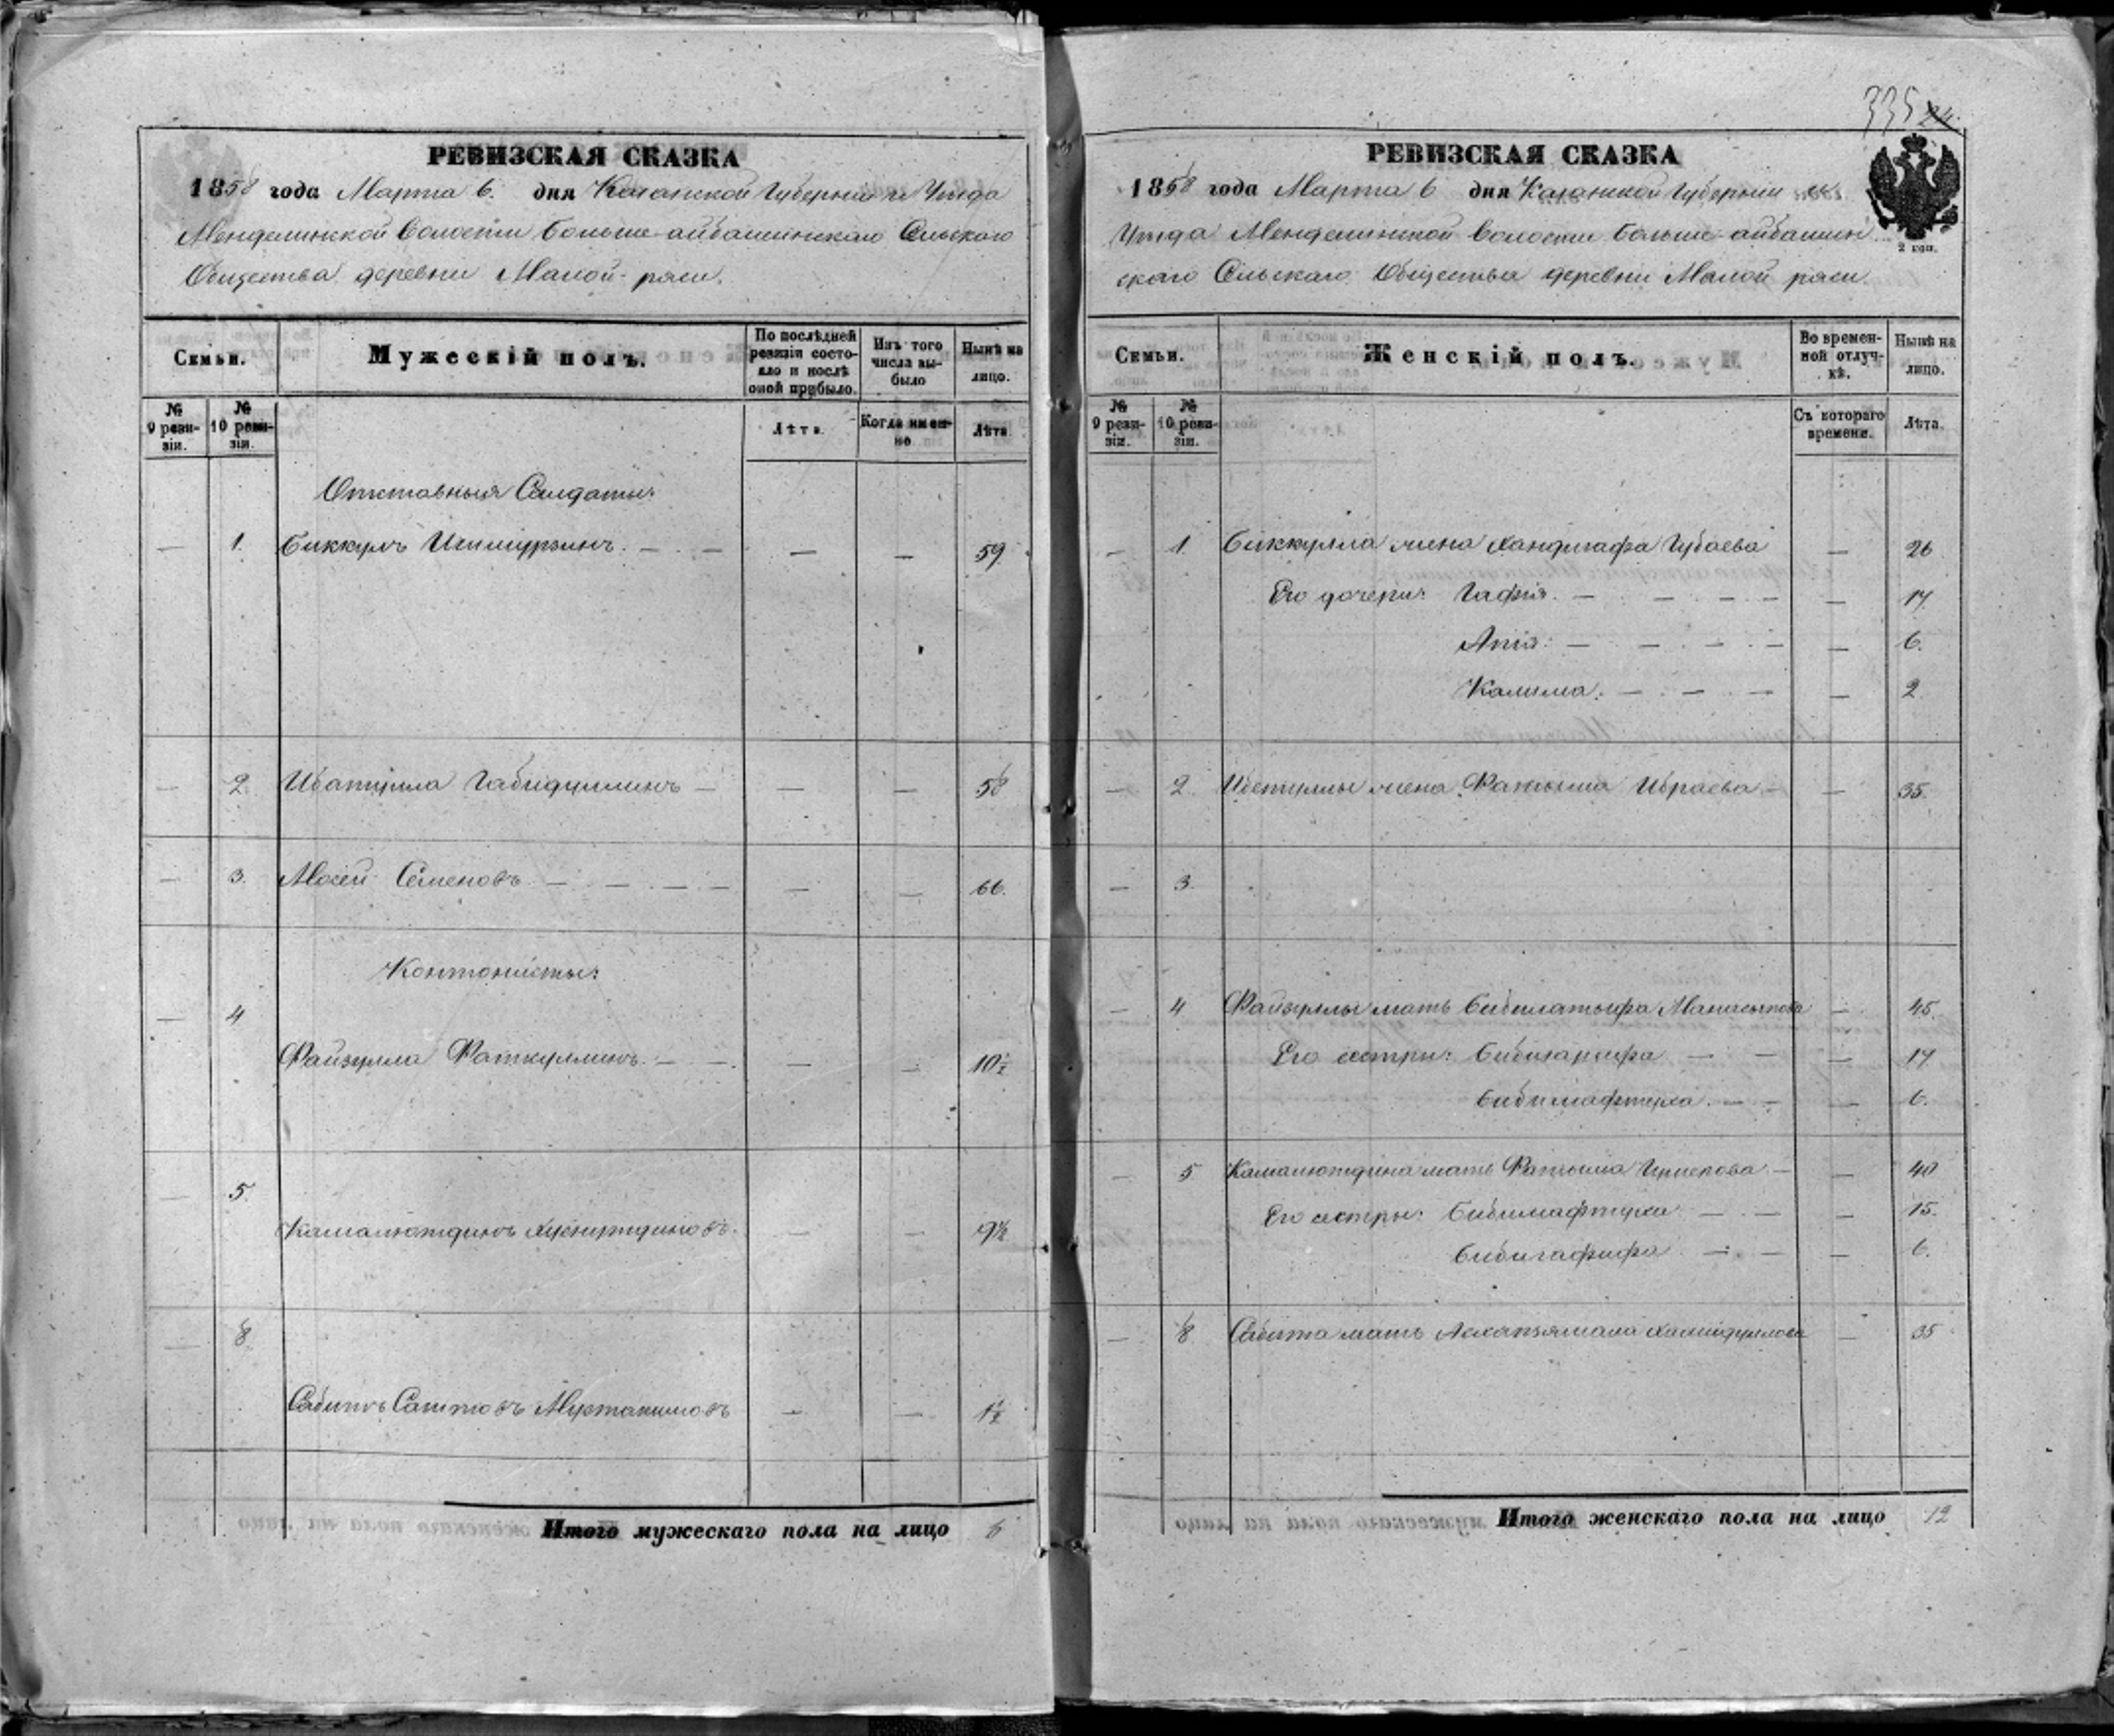 РЕВИЗСКАЯ СКАЗКА
1858 года Марта 6. дня Казанской Губернии и Уѣзда
Менделинской Волости Больше-айбашинскаго Сельскаго
Общества деревни Малой-ряси.
Семьи.
Мужескій полъ.
По послѣдней ревизіи состояло и послѣ оной прибыло.
Изъ того числа выбыло
Нынѣ на лицо.
№ 9 ревизіи.
№ 10 ревизіи.
Лѣта.
Когда именно
Лѣта.
Отставныя Солдаты:
— 1. Биккулъ — — 59.
— 2. Ибатулла Габидуллинъ — — — 58
— 3. Мосей Семеновъ — — — 66.
Контонисты:
— 4
Файзулла Раткуллинъ. — — 10½
— 5.
Камалютдинъ — — 9½
— 6
Сабитъ Саитовъ Мустакимовъ — — 1½
Итого мужескаго пола на лицо 6
335
24.
РЕВИЗСКАЯ СКАЗКА
1858 года Марта 6 дня Казанской Губерніи
Уѣзда Менделинской Волости Больше-айбашин
скаго Сельскаго Общества деревни Малой ряси
2 коп.
Семьи.
Женскій полъ.
Во временной отлучкѣ.
Нынѣ на лицо.
№ 9 ревизіи.
№ 10 ревизіи.
Съ котораго времени.
Лѣта.
— 1. Биккулла жена Губаева — 26
Его дочери: Гафія. — 14
Апія: — 6.
Калима. — 2.
— 2. жена Фатыма Ибраева — — 35.
— 3.
— 4 Файзуллы мать Бибилатыфа — 45.
Его сестры: — 14
Бибимафтуха. — 6.
— 5 Камалютдина мать Фатыма — 40
Его сестры: Бибимафтуха — 15.
Бибигафифа — 6.
— 6 Сабита мать — 35
Итого женскаго пола на лицо 12